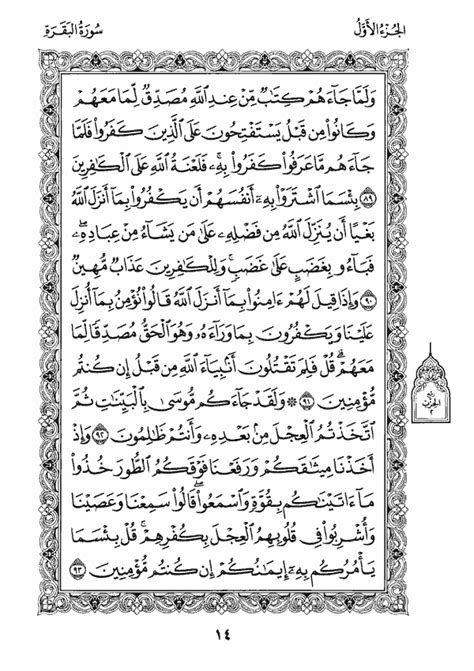 الجُزءُ الأَوَّلُ
سُورَةُ البَقَرَةِ
وَلَمَّا جَآءَهُمْ كِتَٰبٌ مِّنْ عِندِ ٱللَّهِ مُصَدِّقٌ لِّمَا مَعَهُمْ
وَكَانُوا۟ مِن قَبْلُ يَسْتَفْتِحُونَ عَلَى ٱلَّذِينَ كَفَرُوا۟ فَلَمَّا
جَآءَهُم مَّا عَرَفُوا۟ كَفَرُوا۟ بِهِۦ ۚ فَلَعْنَةُ ٱللَّهِ عَلَى ٱلْكَٰفِرِينَ
٨٩ بِئْسَمَا ٱشْتَرَوْا۟ بِهِۦٓ أَنفُسَهُمْ أَن يَكْفُرُوا۟ بِمَآ أَنزَلَ ٱللَّهُ
بَغْيًا أَن يُنَزِّلَ ٱللَّهُ مِن فَضْلِهِۦ عَلَىٰ مَن يَشَآءُ مِنْ عِبَادِهِۦ ۖ
فَبَآءُو بِغَضَبٍ عَلَىٰ غَضَبٍ ۚ وَلِلْكَٰفِرِينَ عَذَابٌ مُّهِينٌ
٩٠ وَإِذَا قِيلَ لَهُمْ ءَامِنُوا۟ بِمَآ أَنزَلَ ٱللَّهُ قَالُوا۟ نُؤْمِنُ بِمَآ أُنزِلَ
عَلَيْنَا وَيَكْفُرُونَ بِمَا وَرَآءَهُۥ وَهُوَ ٱلْحَقُّ مُصَدِّقًا لِّمَا
مَعَهُمْ ۗ قُلْ فَلِمَ تَقْتُلُونَ أَنۢبِيَآءَ ٱللَّهِ مِن قَبْلُ إِن كُنتُم
مُّؤْمِنِينَ ٩١ ۞ وَلَقَدْ جَآءَكُم مُّوسَىٰ بِٱلْبَيِّنَٰتِ ثُمَّ
ٱتَّخَذْتُمُ ٱلْعِجْلَ مِنۢ بَعْدِهِۦ وَأَنتُمْ ظَٰلِمُونَ ٩٢ وَإِذْ
أَخَذْنَا مِيثَٰقَكُمْ وَرَفَعْنَا فَوْقَكُمُ ٱلطُّورَ خُذُوا۟
مَآ ءَاتَيْنَٰكُم بِقُوَّةٍ وَٱسْمَعُوا۟ ۖ قَالُوا۟ سَمِعْنَا وَعَصَيْنَا
وَأُشْرِبُوا۟ فِى قُلُوبِهِمُ ٱلْعِجْلَ بِكُفْرِهِمْ ۚ قُلْ بِئْسَمَا
يَأْمُرُكُم بِهِۦٓ إِيمَٰنُكُمْ إِن كُنتُم مُّؤْمِنِينَ ٩٣
الحزب
٢
١٤